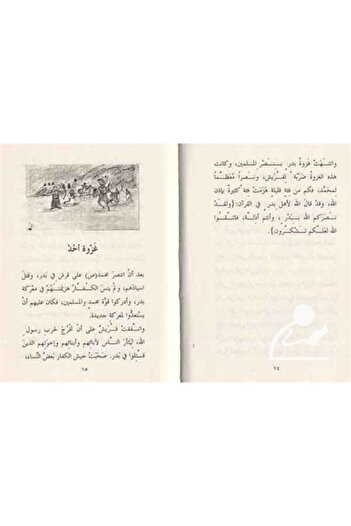 وانتهت غزوة بدر بنصر المسلمين، وكانت
هذه الغزوة ضربة لقريش، ونصراً معظماً
لمحمد، فكم من فئة قليلة هزمت فئة كثيرة بإذن
الله، وقد قال الله لأهل بدر في القرآن: (ولقد
نصركم الله ببدر، وأنتم أذلة، فاتقوا
الله لعلكم تشكرون).
١٤
غزوة أحد
بعد أن انتصر محمد(ص) على قريش في بدر، وقتل
أسيادهم، ولم ينس الكفار هزيمتهم في معركة
بدر، وأدركوا قوة محمد والمسلمين، فكان عليهم أن
يستعدوا لمعركة جديدة.
واتفقت قريش على أن تخرج لحرب رسول
الله، ليثأر الناس لآبائهم وأبنائهم وإخوتهم الذين
قتلوا في بدر. صحبت جيش الكفار بعض النساء،
١٥